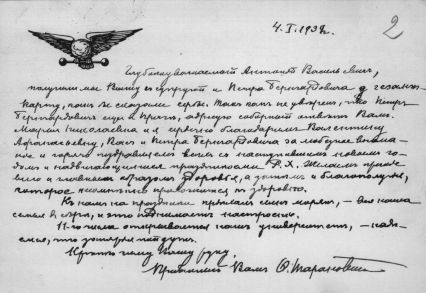 4.I.1938г.
2
Глубокоуважаемый Антоний Васильевич,
получили мы Вашу с супругой и Петра Бернгардовича
карту, Таким как не уверен, что Петр
Бернгардович еще в Праге, адресую собирный ответ Вам.
Мария Николаевна и я сердечно благодарим Валентину
Афанасьевну, Вас и Петра Бернгардовича за любезное внима-
ние и горячо поздравляем всех с наступившим новым го-
дом и надвигающимся праздником Р. Х. Желаем прежде
всего и главным образом здоровья, а затем и благополучия,
которое неминуемо приложится к здоровью.
К нам на праздники приехал сын моряк, – вся наша
семья в сборе, и это поднимает настроение.
11-го числа открывается наш университет, – наде-
емся, что
Крепко жму Вашу руку.
Преданный Вам Ѳ. Тарановский